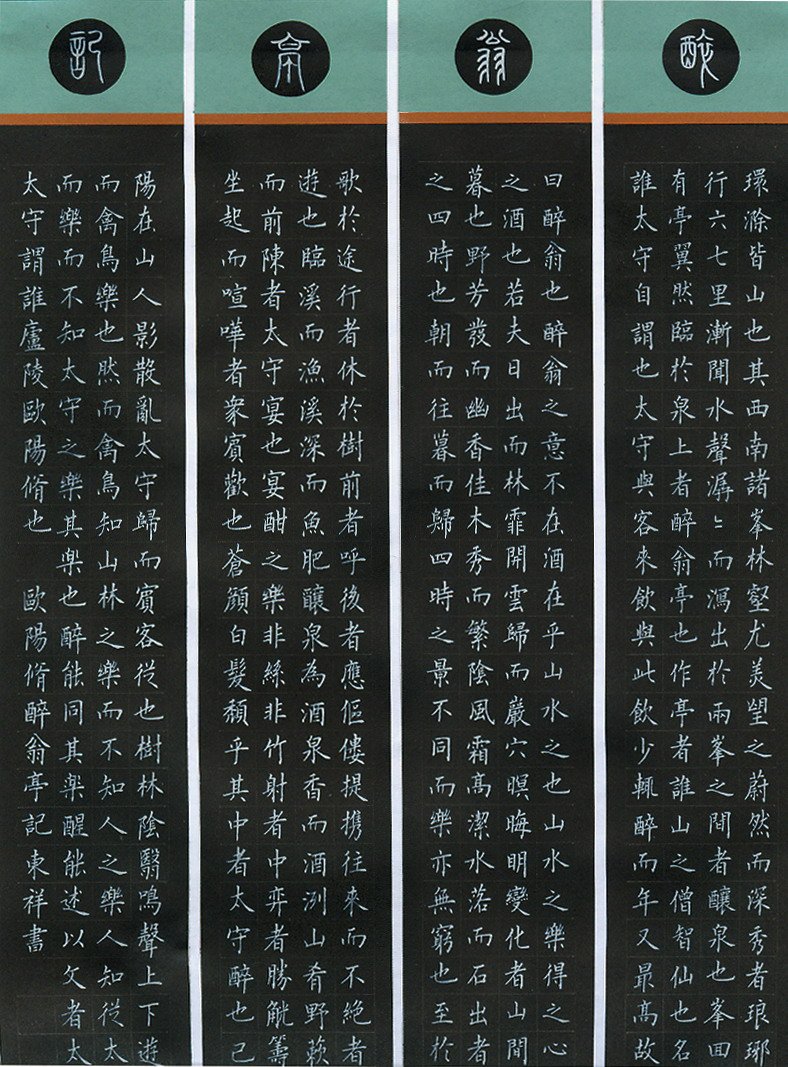 醉
環滁皆山也其西南諸峯林壑尤美望之蔚然而深秀者琅琊
行六七里漸聞水聲潺〻而瀉出於兩峯之間者釀泉也峯回
有亭翼然臨於泉上者醉翁亭也作亭者誰山之僧智仙也名
誰太守自謂也太守與客來飲與此飲少輒醉而年又最高故
翁
曰醉翁也醉翁之意不在酒在乎山水之也山水之樂得之心
之酒也若夫日出而林霏開雲歸而巖穴暝晦明變化者山間
暮也野芳發而幽香佳木秀而繁陰風霜高潔水落而石出者
之四時也朝而往暮而歸四時之景不同而樂亦無窮也至於
亭
歌於途行者休於樹前者呼後者應傴僂提携往來而不絕者
遊也臨溪而漁溪深而魚肥釀泉為酒泉香而酒洌山肴野蔌
而前陳者太守宴也宴酣之樂非絲非竹射者中弈者勝觥籌
坐起而喧嘩者衆賓歡也蒼顏白髮頹乎其中者太守醉也已
記
陽在山人影散亂太守歸而賓客從也樹林陰翳鳴聲上下遊
而禽鳥樂也然而禽鳥知山林之樂而不知人之樂人知從太
而樂而不知太守之樂其樂也醉能同其樂醒能述以文者太
太守謂誰廬陵歐陽脩也 歐陽脩醉翁亭記東祥書